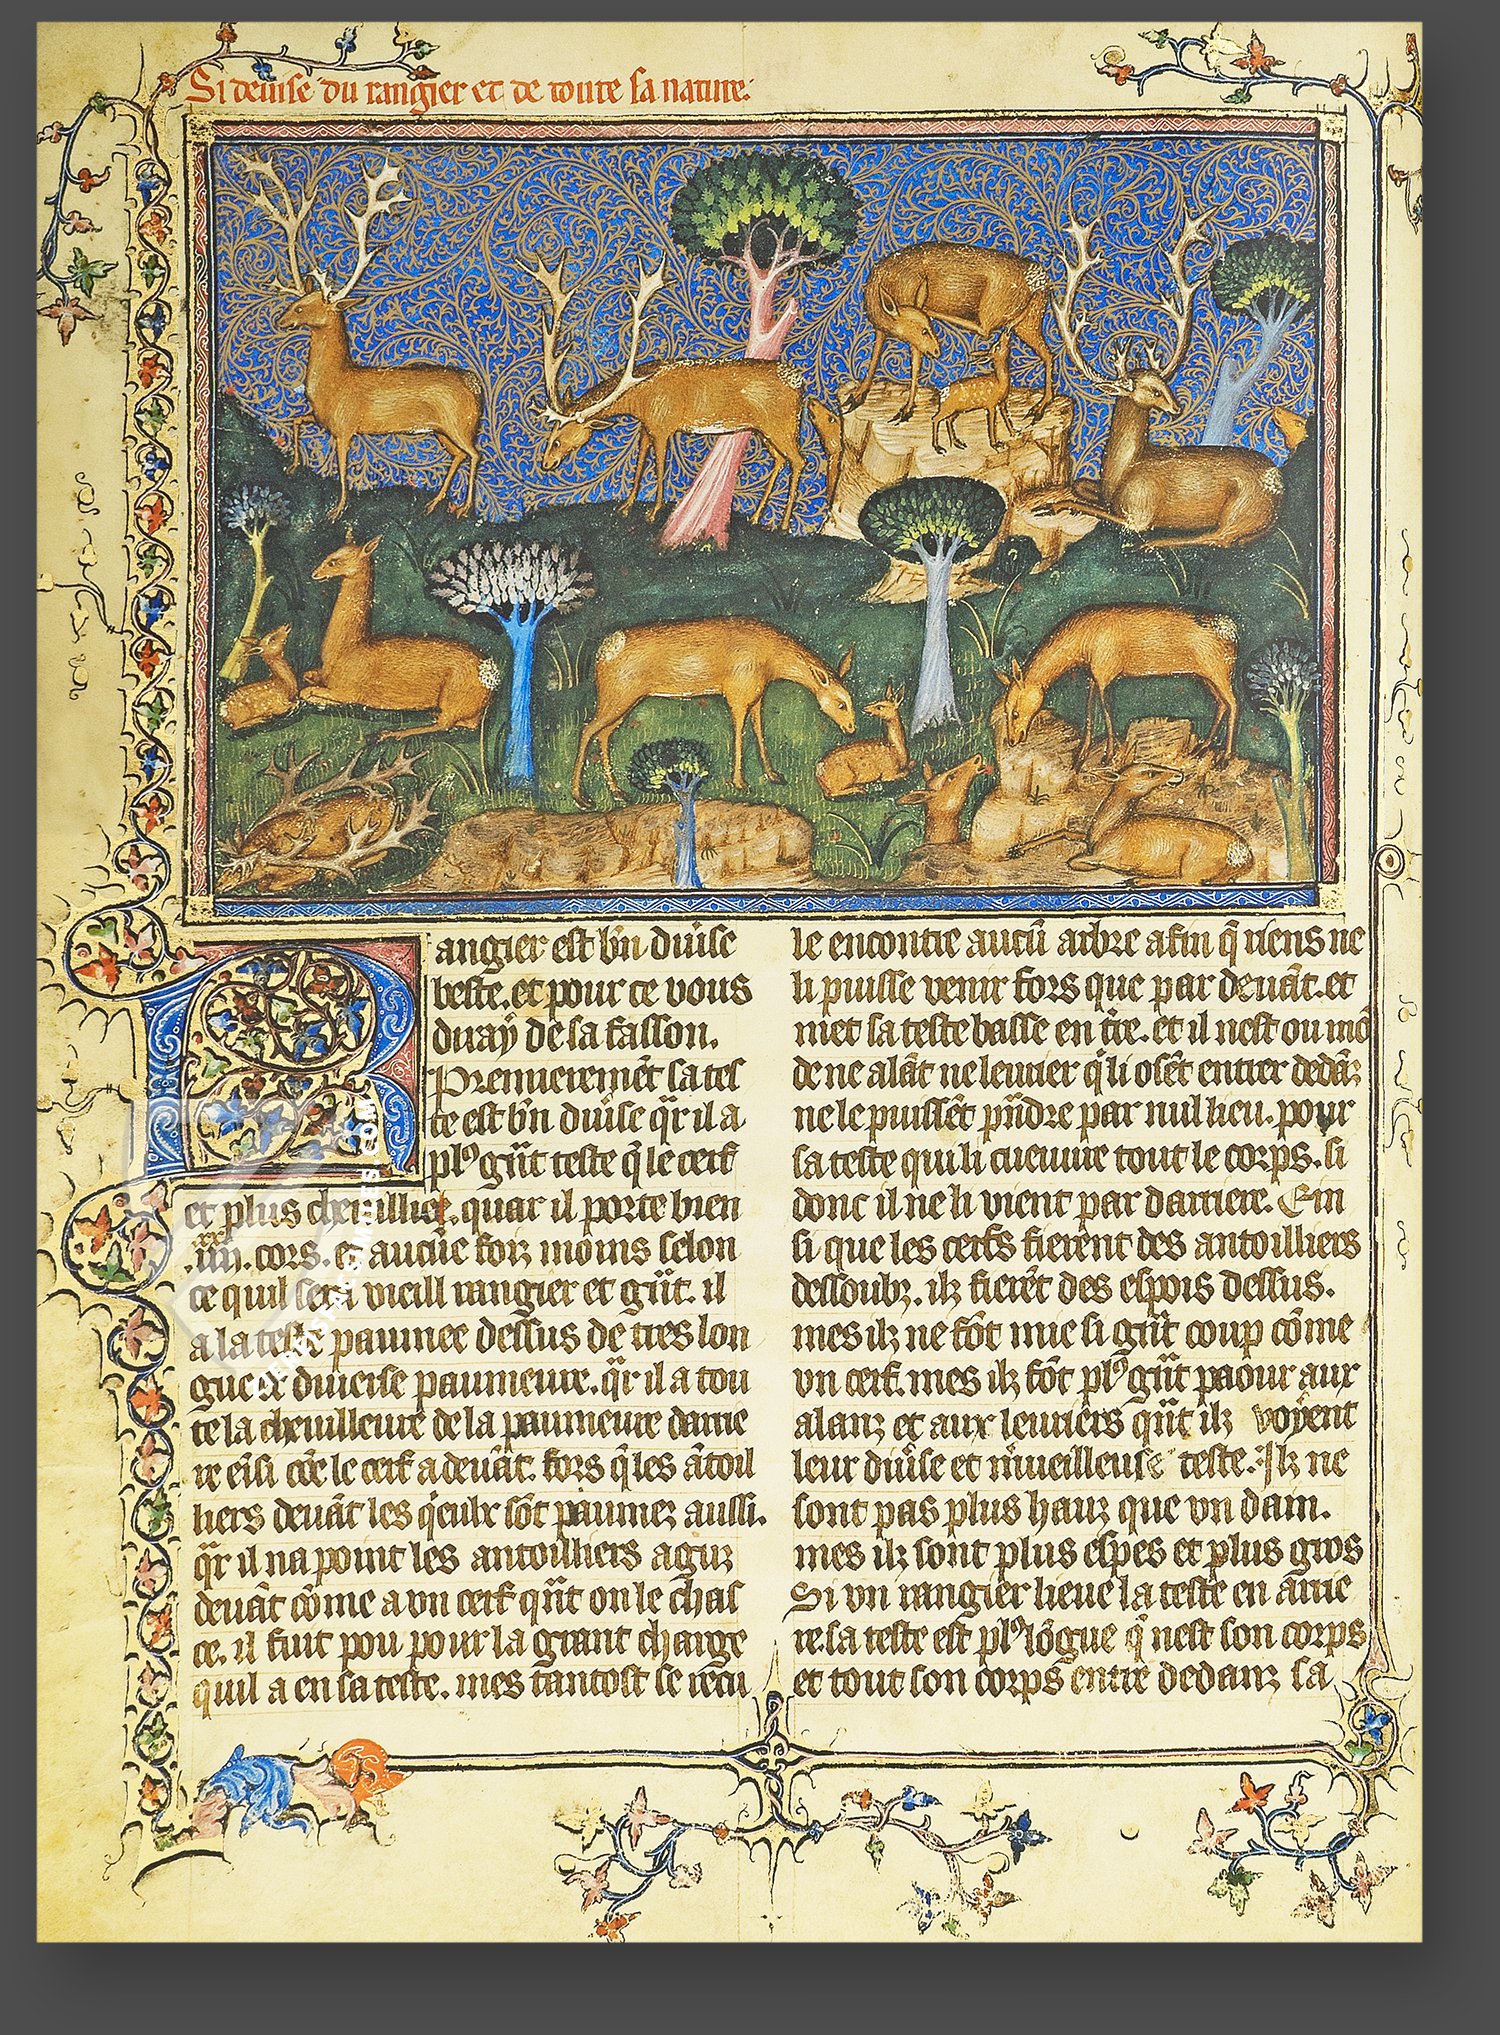 Si deuise du rangier et de toute sa nature.
Rangier est bñ diu̾se
beste. et pour ce vous
duay de sa fasson.
Premieremẽt sa tes
te est bñ diu̾se q̃r il a
plꝰ g̃nt teste q̃ le cerf
et plus cheuillie. quar il porte bien
.iiii.xx cors. et aucũe foiz moins selon
ce quil sera vieill rangier et g̃nt. il
a la teste paumee dessus de tres lon
gue et diuerse paumeure. q̃r il a tou
te la cheuilleure de la paumeure darrie
re eĩsi cõe le cerf a deuãt. fors q̃ les ãtoil
liers deuãt les q̃eulx sõt paumez aussi.
q̃r il na point les antoilliers aguz
deuãt cõme a vn cerf q̃nt on le chas
ce. il fuit pou pour la grant charge
quil a en sa teste. mes tantost se recu
le encontre aucũ arbre afin q̃ riens ne
li puisse venir fors que par deuãt. et
met sa teste basse en t̃re. et il nest ou mõ
de ne alãt ne leurier q̃ li osẽt entrer dedãz
ne le puissẽt p̃ndre par nul lieu. pour
sa teste qui li cueuure tout le corps. si
donc il ne li vient par darriere. Ein
si que les cerfs fierent des antoilliers
dessoubz. ilz fierẽt des espois dessus.
mes ilz ne fõt mie si g̃nt coup cõme
vn cerf. mes ilz fõt plꝰ g̃nt paour aux
alanz et aux leuriers q̃nt ilz voyent
leur diu̾se et m̾ueilleuse teste. Ilz ne
sont pas plus hauz que vn dam.
mes ilz sont plus espes et plus gros
Si vn rangier lieue la teste en arrie
re. sa teste est plꝰ lõgue q̃ nest son corps
et tout son corps entre dedanz sa